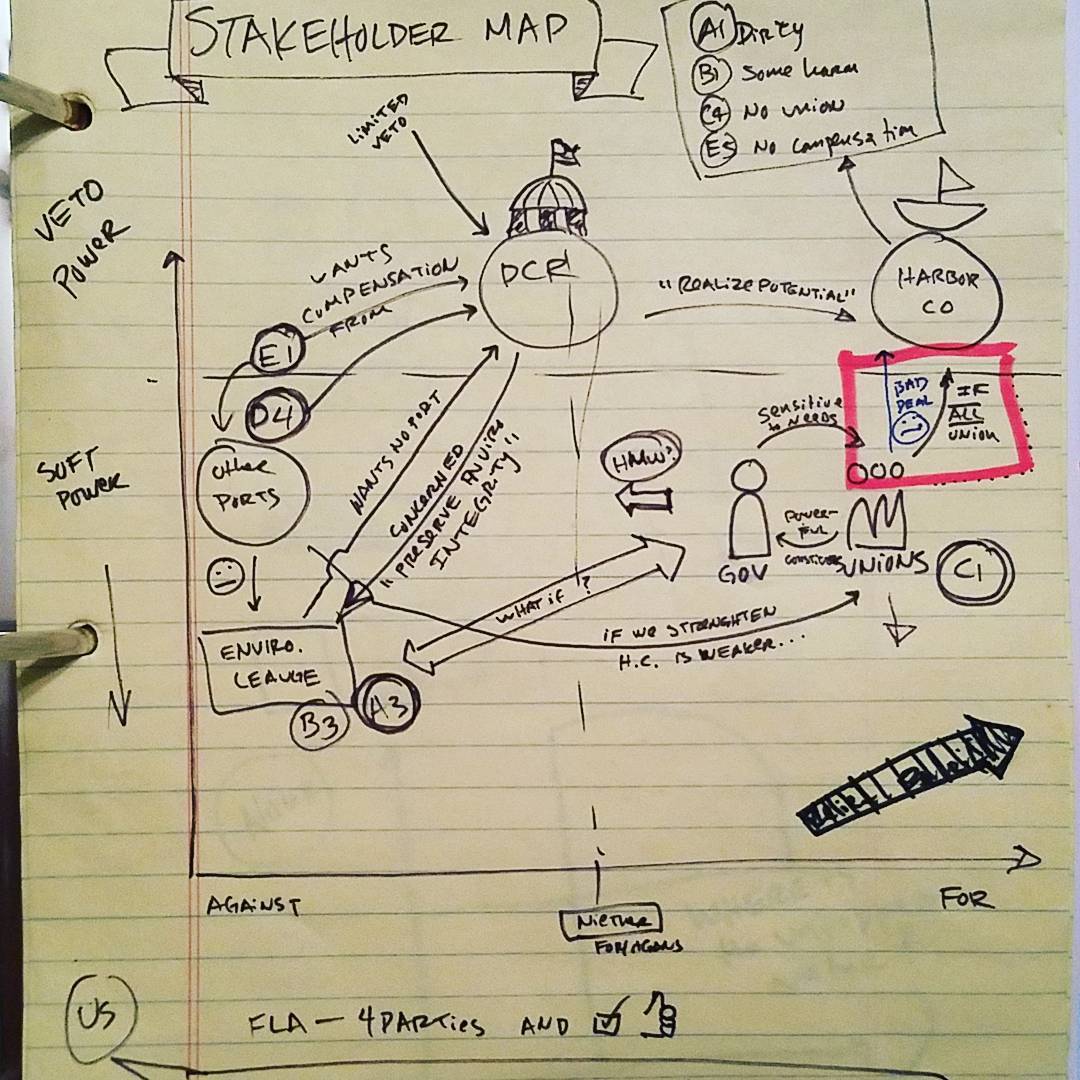 STAKEHOLDER MAP
A1 Dirty
B1 Some harm
C4 No union
E5 No compensation
LIMITED
VETO
VETO
POWER
WANTS
COMPENSATION
FROM
DCR
"REALIZE POTENTIAL"
HARBOR
CO
E1
D4
SOFT
POWER
OTHER
PORTS
WANTS NO PORT
CONCERNED
"PRESERVE ENVIRO
INTEGRITY"
HMW?
SENSITIVE
TO NEEDS
BAD
DEAL
IF
ALL
UNION
POWER-
FUL
GOV
UNIONS
C1
WHAT IF ?
IF WE STRENGHTEN
H.C. IS WEAKER...
ENVIRO.
LEAUGE
B3
A3
AGAINST
FOR
NIETHER
FOR/AGANS
US
FLA — 4 PARTIES AND